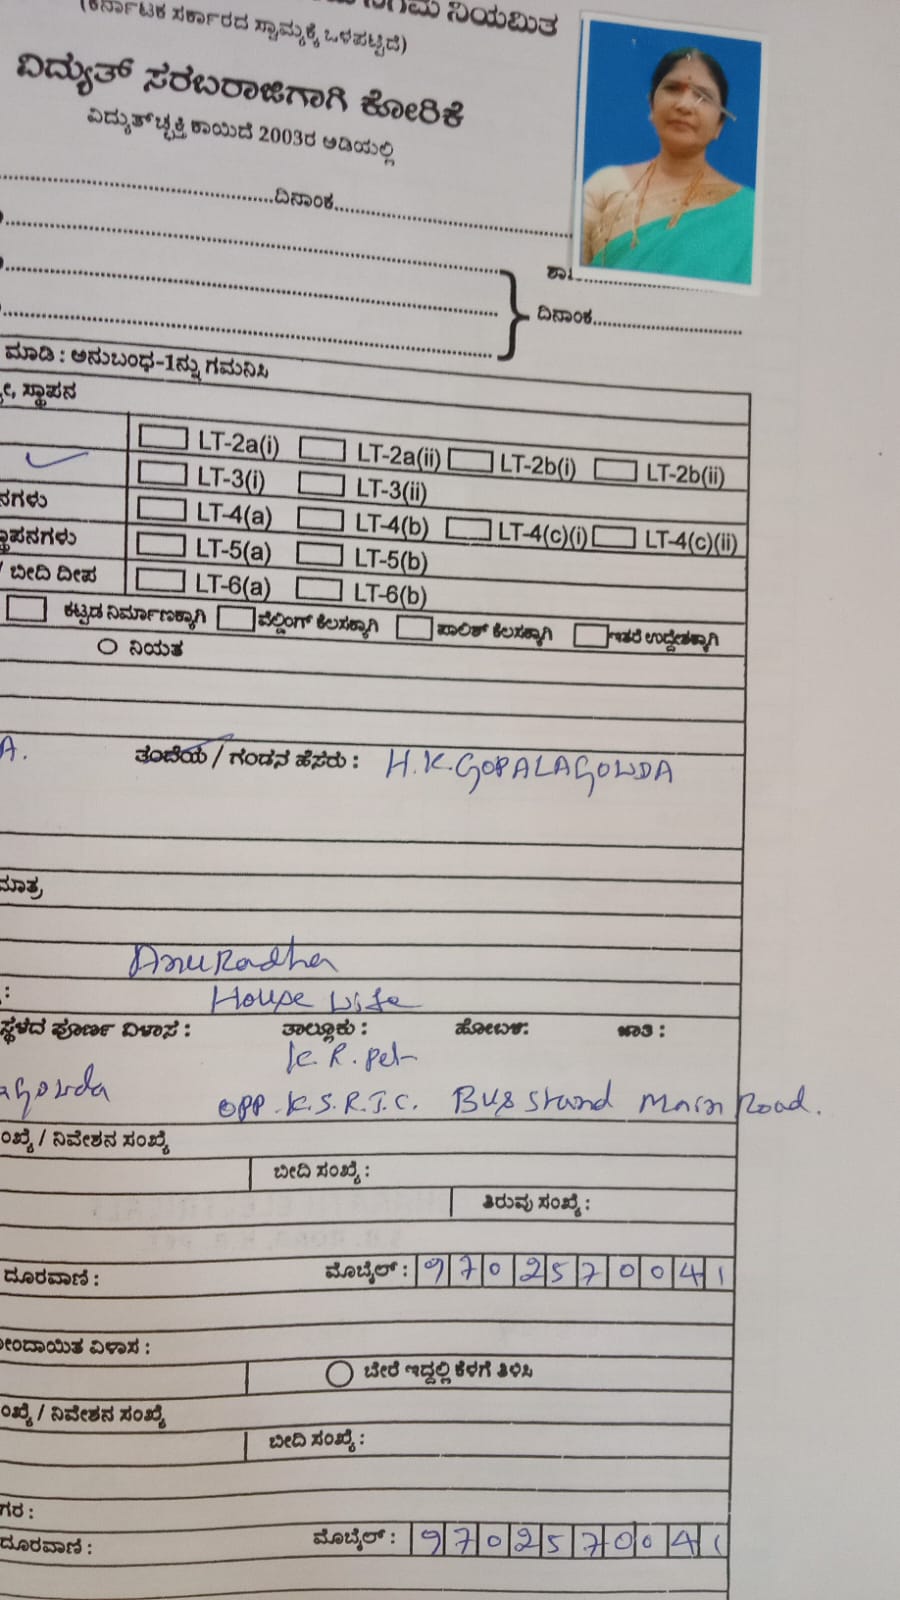 ನಿಗಮ ನಿಯಮಿತ
(ಕರ್ನಾಟಕ ಸರ್ಕಾರದ ಸ್ವಾಮ್ಯಕ್ಕೆ ಒಳಪಟ್ಟಿದೆ)
ವಿದ್ಯುತ್ ಸರಬರಾಜಿಗಾಗಿ ಕೋರಿಕೆ
ವಿದ್ಯುತ್‌ಚ್ಛಕ್ತಿ ಕಾಯಿದೆ 2003ರ ಅಡಿಯಲ್ಲಿ
ದಿನಾಂಕ
ದಿನಾಂಕ
ಮಾಡಿ : ಅನುಬಂಧ-1ನ್ನು ಗಮನಿಸಿ
ಸ್ಥಾಪನ
LT-2a(i) LT-2a(ii) LT-2b(i) LT-2b(ii)
LT-3(i) LT-3(ii)
ನಗಳು LT-4(a) LT-4(b) LT-4(c)(i) LT-4(c)(ii)
ಸ್ಥಾಪನಗಳು LT-5(a) LT-5(b)
/ ಬೀದಿ ದೀಪ LT-6(a) LT-6(b)
ಕಟ್ಟಡ ನಿರ್ಮಾಣಕ್ಕಾಗಿ ವೆಲ್ಡಿಂಗ್ ಕೆಲಸಕ್ಕಾಗಿ ಪಾಲಿಶ್ ಕೆಲಸಕ್ಕಾಗಿ ಇತರೆ ಉದ್ದೇಶಕ್ಕಾಗಿ
ನಿಯತ
A. ತಂದೆಯ / ಗಂಡನ ಹೆಸರು : H.K.GOPALAGOWDA
ಮಾತ್ರ
Anuradha
House wife
ಸ್ಥಳದ ಪೂರ್ಣ ವಿಳಾಸ : ತಾಲ್ಲೂಕು : ಹೋಬಳಿ: ಜಾತಿ :
K.R.pet
agowda opp.K.S.R.T.C. Bus stand Main Road.
ಸಂಖ್ಯೆ / ನಿವೇಶನ ಸಂಖ್ಯೆ
ಬೀದಿ ಸಂಖ್ಯೆ :
ತಿರುವು ಸಂಖ್ಯೆ :
ದೂರವಾಣಿ : ಮೊಬೈಲ್ : 9702570041
ನೋಂದಾಯಿತ ವಿಳಾಸ :
ಬೇರೆ ಇದ್ದಲ್ಲಿ ಕೆಳಗೆ ತಿಳಿಸಿ
ಸಂಖ್ಯೆ / ನಿವೇಶನ ಸಂಖ್ಯೆ
ಬೀದಿ ಸಂಖ್ಯೆ :
ಗರ :
ದೂರವಾಣಿ : ಮೊಬೈಲ್ : 9702570041